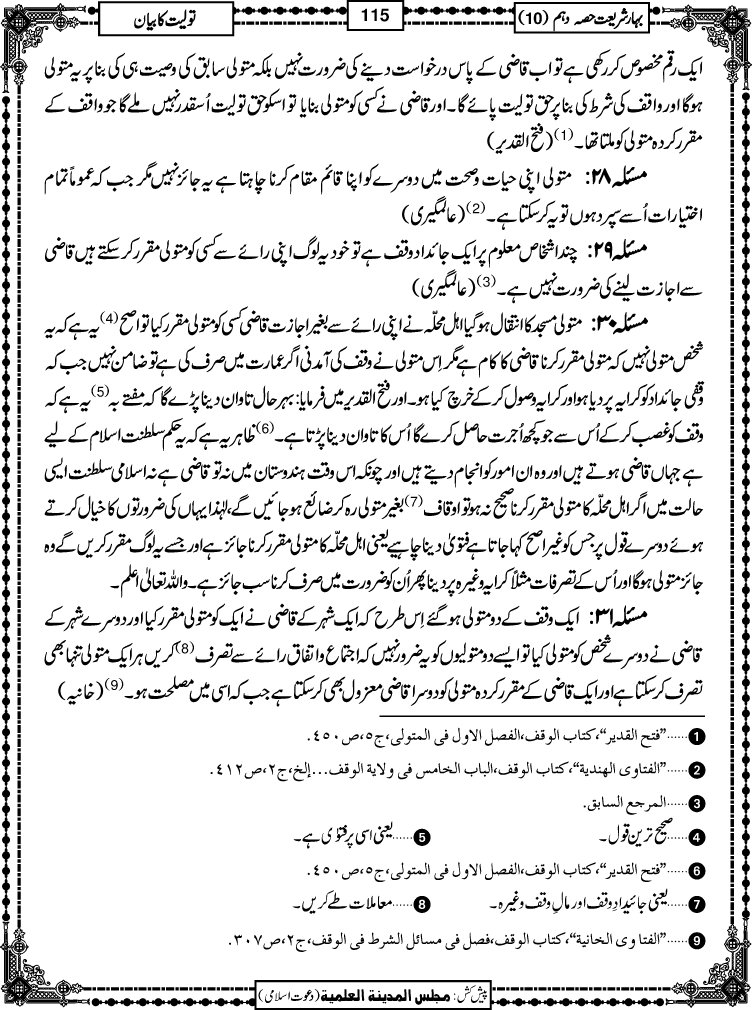 بہار شریعت حصہ دہم (10)
115
تولیت کا بیان
ایک رقم مخصوص کر رکھی ہے تو اب قاضی کے پاس درخواست دینے کی ضرورت نہیں بلکہ متولی سابق کی وصیت ہی کی بنا پر یہ متولی
ہوگا اور واقف کی شرط کی بنا پر حق تولیت پائے گا۔ اور قاضی نے کسی کو متولی بنایا تو اسکو حق تولیت اُسقدر نہیں ملے گا جو واقف کے
مقرر کردہ متولی کو ملتا تھا۔(1) (فتح القدیر)
مسئلہ ۲۸: متولی اپنی حیات و صحت میں دوسرے کو اپنا قائم مقام کرنا چاہتا ہے یہ جائز نہیں مگر جب کہ عموماً تمام
اختیارات اُسے سپرد ہوں تو یہ کرسکتا ہے۔(2) (عالمگیری)
مسئلہ ۲۹: چند اشخاص معلوم پر ایک جائداد وقف ہے تو خود یہ لوگ اپنی رائے سے کسی کو متولی مقرر کر سکتے ہیں قاضی
سے اجازت لینے کی ضرورت نہیں ہے۔(3) (عالمگیری)
مسئلہ ۳۰: متولی مسجد کا انتقال ہوگیا اہل محلّہ نے اپنی رائے سے بغیر اجازت قاضی کسی کو متولی مقرر کیا تو اصح(4) یہ ہے کہ یہ
شخص متولی نہیں کہ متولی مقرر کرنا قاضی کا کام ہے مگر اِس متولی نے وقف کی آمدنی اگر عمارت میں صرف کی ہے تو ضامن نہیں جب کہ
وقفی جائداد کو کرایہ پر دیا ہو اور کرایہ وصول کر کے خرچ کیا ہو۔ اور فتح القدیر میں فرمایا: بہر حال تاوان دینا پڑے گا کہ مفتے بہ(5) یہ ہے کہ
وقف کو غصب کر کے اُس سے جو کچھ اُجرت حاصل کرے گا اُس کا تاوان دینا پڑتا ہے۔(6) ظاہر یہ ہے کہ یہ حکم سلطنت اسلام کے لیے
ہے جہاں قاضی ہوتے ہیں اور وہ ان امور کو انجام دیتے ہیں اور چونکہ اس وقت ہندوستان میں نہ تو قاضی ہے نہ اسلامی سلطنت ایسی
حالت میں اگر اہل محلّہ کا متولی مقرر کرنا صحیح نہ ہو تو اوقاف(7) بغیر متولی رہ کر ضائع ہو جائیں گے، لہٰذا یہاں کی ضرورتوں کا خیال کرتے
ہوئے دوسرے قول پر جس کو غیر اصح کہا جاتا ہے فتویٰ دینا چاہیے یعنی اہل محلّہ کا متولی مقرر کرنا جائز ہے اور جسے یہ لوگ مقرر کریں گے وہ
جائز متولی ہوگا اور اُس کے تصرفات مثلاً کرایہ وغیرہ پر دینا پھر اُن کو ضرورت میں صرف کرنا سب جائز ہے۔ واللہ تعالٰی اعلم۔
مسئلہ ۳۱: ایک وقف کے دو متولی ہو گئے اِس طرح کہ ایک شہر کے قاضی نے ایک کو متولی مقرر کیا اور دوسرے شہر کے
قاضی نے دوسرے شخص کو متولی کیا تو ایسے دو متولیوں کو یہ ضرور نہیں کہ اجتماع و اتفاق رائے سے تصرف(8) کریں ہر ایک متولی تنہا بھی
تصرف کرسکتا ہے اور ایک قاضی کے مقرر کردہ متولی کو دوسرا قاضی معزول بھی کرسکتا ہے جب کہ اسی میں مصلحت ہو۔(9) (خانیہ)
1......”فتح القدير“، كتاب الوقف، الفصل الاول فى المتولى، ج٥، ص٤٥٠.
2......”الفتاوى الهندية“، كتاب الوقف، الباب الخامس فى ولاية الوقف...إلخ، ج٢، ص٤١٢.
3......المرجع السابق.
4......صحیح ترین قول۔ 5......یعنی اسی پر فتوٰی ہے۔
6......”فتح القدير“، كتاب الوقف، الفصل الاول فى المتولى، ج٥، ص٤٥٠.
7......یعنی جائیدادِ وقف اور مالِ وقف وغیرہ۔ 8......معاملات طے کریں۔
9......”الفتاوى الخانية“، كتاب الوقف، فصل فى مسائل الشرط فى الوقف، ج٢، ص٣٠٧.
پیش کش: مجلس المدینة العلمیة (دعوت اسلامی)